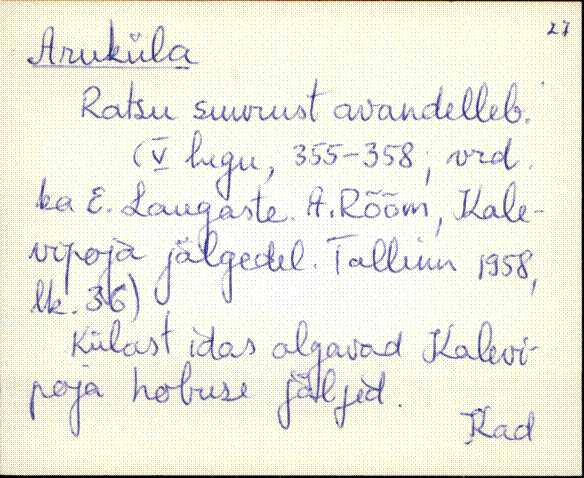 27
Aruküla
Ratsu suurust avandelleb.
(V lugu, 355-358; vrd.
ka E. Laugaste. A. Rõõm, Kale-
vipoja jälgedel. Tallinn 1958,
lk. 36)
Külast idas algavad Kalevi-
poja hobuse jäljed.
Kad